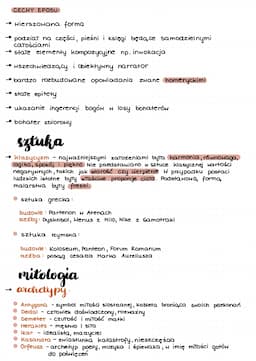 CECHY EPOSU
→ wierszowana forma
→ podział na części, pieśni i księgi będące samodzielnymi całościami
→ stałe elementy kompozycyjne np. inwokacja
→ wszechwiedzący i obiektywny narrator
→ bardzo rozbudowane opowiadania zwane homeryckimi
→ stałe epitety
→ ukazanie ingerencji bogów w losy bohaterów
→ bohater zbiorowy
sztuka
→ klasycyzm - najważniejszymi założeniami były harmonia, równowaga,
logika, spokój i piękno. Nie przedstawiano w sztuce klasycznej wartości
negatywnych, takich jak starość czy cierpienie. W przypadku postaci
ludzkich istotne były właściwe proporcje ciała. Podstawową formą
malarstwa były freski.
sztuka grecka:
budowle: Partenon w Atenach
rzeźby: Dyskobol, Wenus z Milo, Nike z Samotraki
sztuka rzymska:
budowle: Koloseum, Panteon, Forum Romanum
rzeźba: posąg cesarza Marka Aureliusza
mitologia
→ archetypy:
Antygona - symbol miłości siostrzanej, kobieta broniąca swoich przekonań
Dedal - człowiek doświadczony, rozważny
Demeter - czułość i miłość matki
Herakles - męstwo i siła
Ikar - idealista, marzyciel
Kasandra - zwiastunka katastrofy, nieszczęścia
Orfeusz - archetyp poety, muzyka i śpiewaka, w imię miłości gotów
do poświęceń